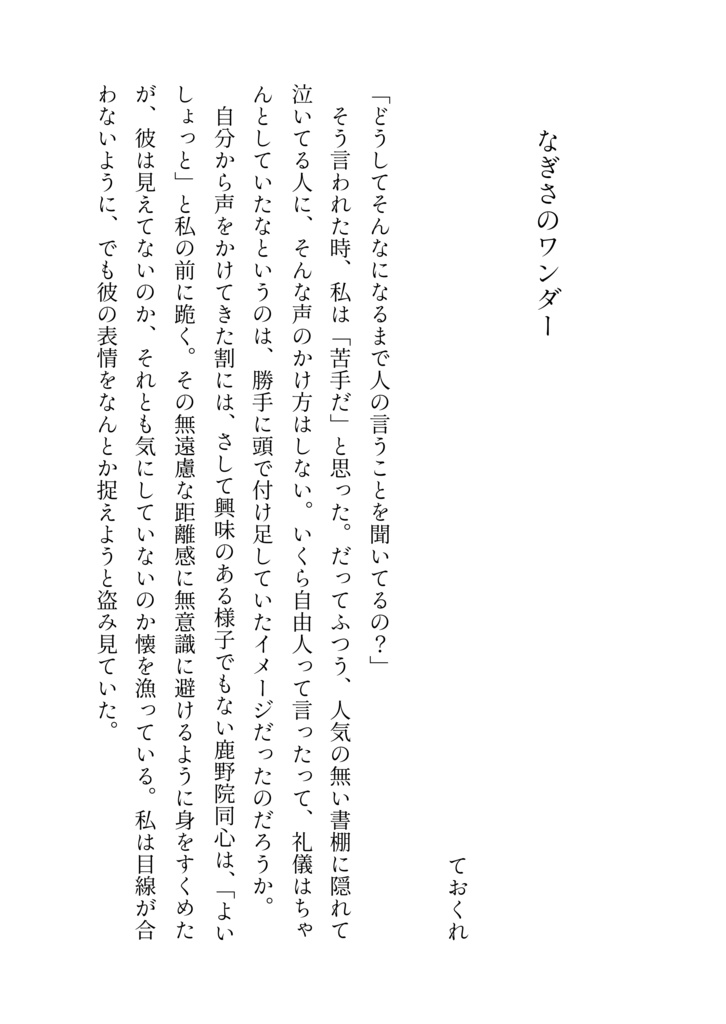 なぎさのワンダー
ておくれ
「どうしてそんなになるまで人の言うことを聞いてるの？」
そう言われた時、私は「苦手だ」と思った。だってふつう、人気の無い書棚に隠れて
泣いてる人に、そんな声のかけ方はしない。いくら自由人って言ったって、礼儀はちゃ
んとしていたなというのは、勝手に頭で付け足していたイメージだったのだろうか。
自分から声をかけてきた割には、さして興味のある様子でもない鹿野院同心は、「よい
しょっと」と私の前に跪く。その無遠慮な距離感に無意識に避けるように身をすくめた
が、彼は見えてないのか、それとも気にしていないのか懐を漁っている。私は目線が合
わないように、でも彼の表情をなんとか捉えようと盗み見ていた。